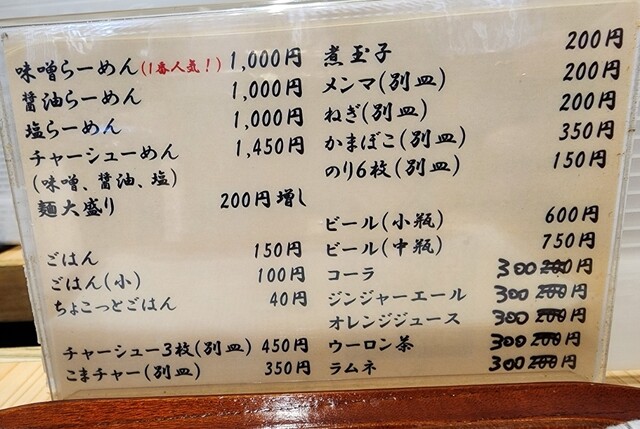 味噌らーめん(1番人気!) 1,000円
醤油らーめん 1,000円
塩らーめん 1,000円
チャーシューめん 1,450円
(味噌、醤油、塩)
麺大盛り 200円増し
ごはん 150円
ごはん(小) 100円
ちょこっとごはん 40円
チャーシュー3枚(別皿) 450円
こまチャー(別皿) 350円
煮玉子 200円
メンマ(別皿) 200円
ねぎ(別皿) 200円
かまぼこ(別皿) 350円
のり6枚(別皿) 150円
ビール(小瓶) 600円
ビール(中瓶) 750円
コーラ 300 200円
ジンジャーエール 300 200円
オレンジジュース 300 200円
ウーロン茶 300 200円
ラムネ 300 200円